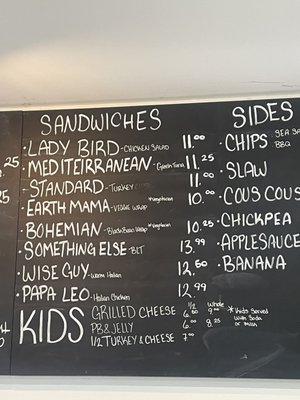 SANDWICHES
SIDES
LADY BIRD - CHICKEN SALAD 11.00
MEDITEIRRANEAN - Greek Tuna 11.25
STANDARD - TURKEY 11.00
EARTH MAMA - VEGGIE WRAP *Vegetarian 10.00
BOHEMIAN - Black Bean Wrap *Vegetarian 10.25
SOMETHING ELSE - BLT 13.99
WISE GUY - Warm Italian 12.50
PAPA LEO - Italian Chicken 12.99
CHIPS SEA SA
BBQ
SLAW
COUS COUS
CHICKPEA
APPLESAUCE
BANANA
KIDS
1/2 Whole
GRILLED CHEESE 6.50 9.00
PB & JELLY 6.00 8.25
1/2 TURKEY & CHEESE 7.00
*Kids Served
with Soda
or Milk
.25